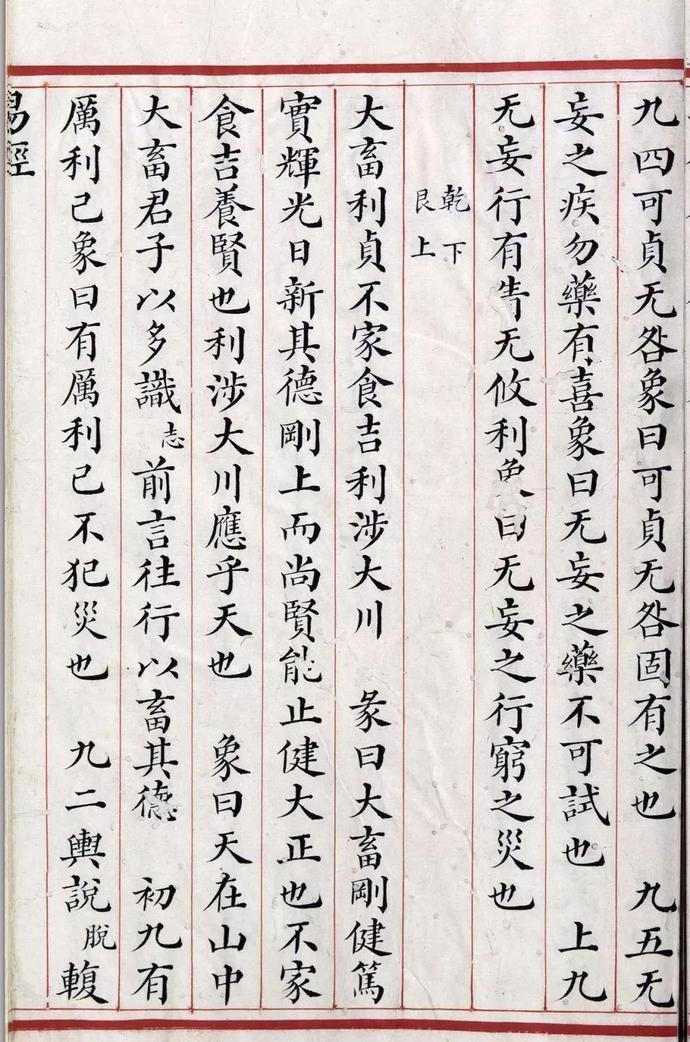 九四可貞无咎象曰可貞无咎固有之也 九五无
妄之疾勿藥有喜象曰无妄之藥不可試也 上九
无妄行有眚无攸利象曰无妄之行窮之災也
乾下
艮上
大畜利貞不家食吉利涉大川 彖曰大畜剛健篤
實輝光日新其德剛上而尚賢能止健大正也不家
食吉養賢也利涉大川應乎天也 象曰天在山中
大畜君子以多識志前言往行以畜其德 初九有
厲利已象曰有厲利已不犯災也 九二輿說脫輹
易經